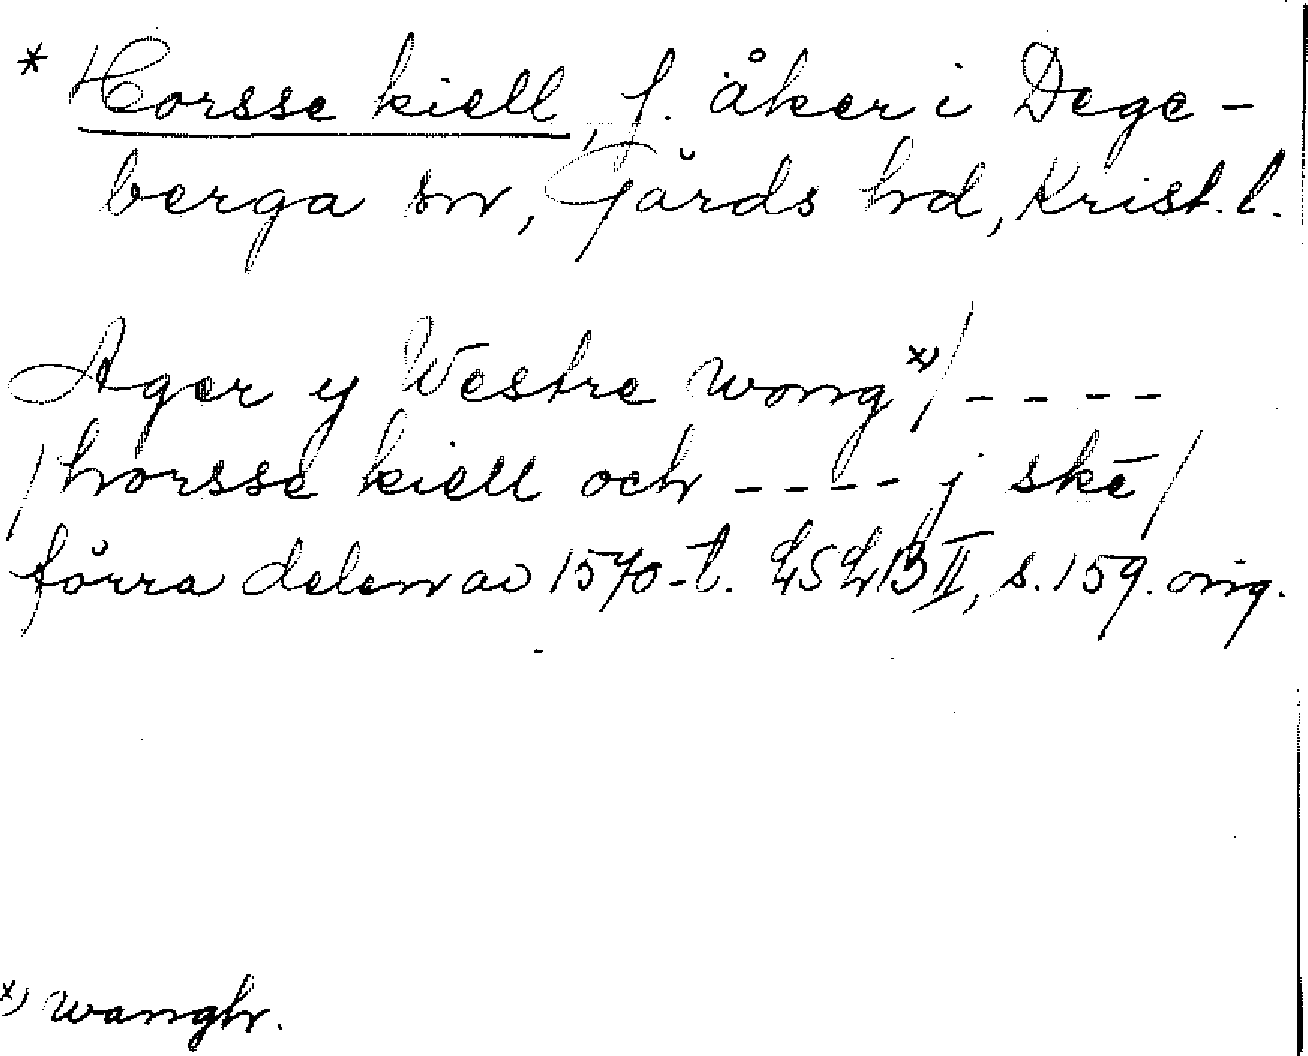 * Horsse kiell, f. åker i Dege-
berga sn, Gärds hd, Krist. l.
Ager y Westre wong x) / - - - -
/ horsse kiell och - - - - j skē /
förra delen av 1570-t. LSLB II, s. 159. orig.
x) wangh.